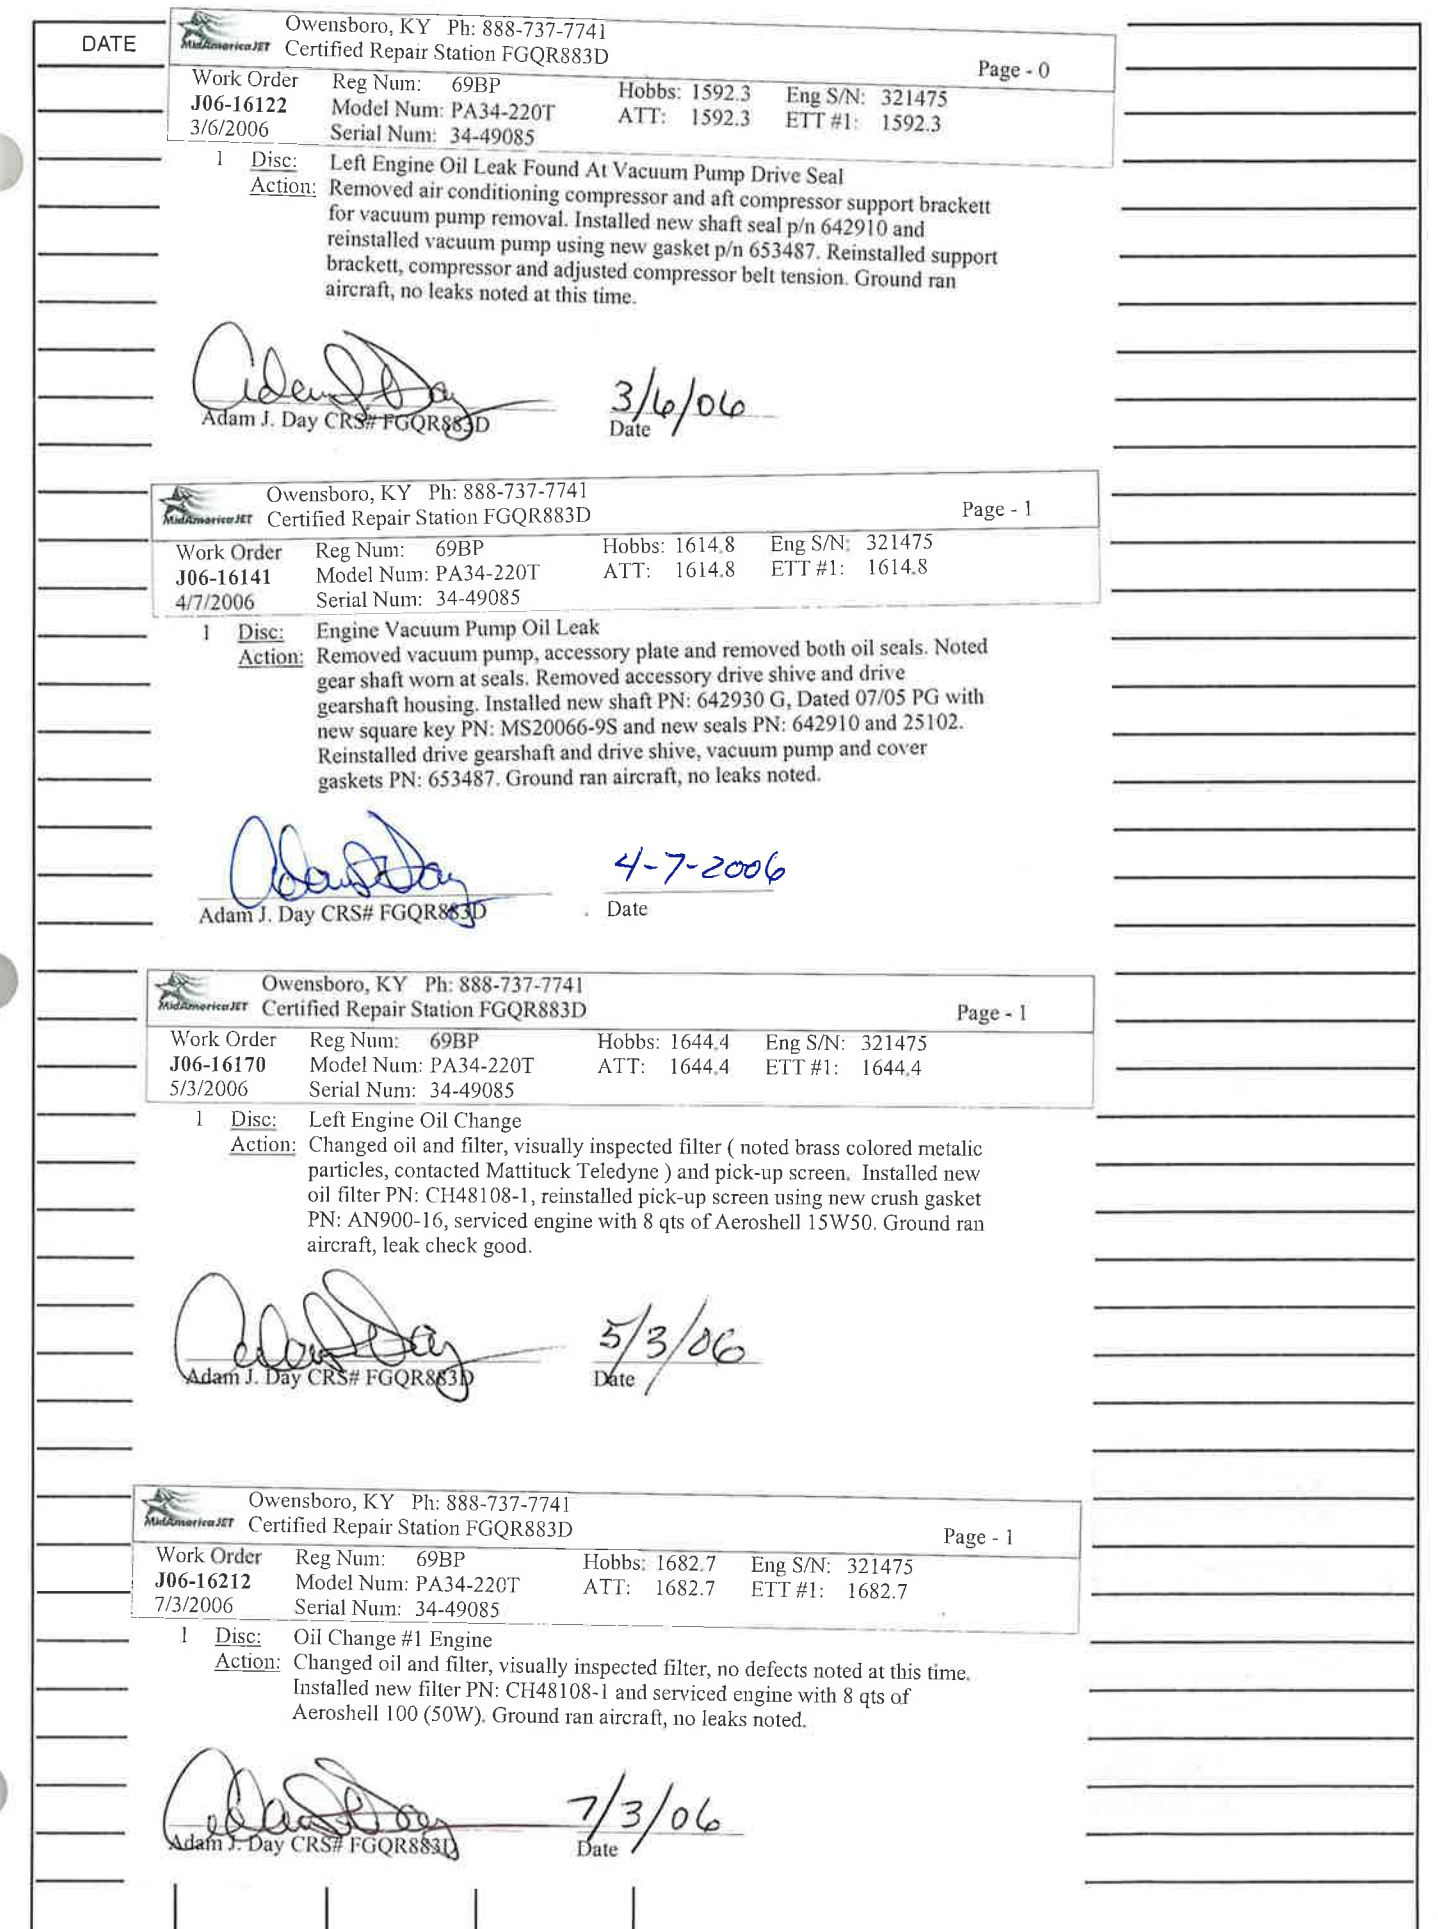 DATE
MidAmericaJET
Owensboro, KY Ph: 888-737-7741
Certified Repair Station FGQR883D
Page - 0
Work Order Reg Num: 69BP Hobbs: 1592.3 Eng S/N: 321475
J06-16122 Model Num: PA34-220T ATT: 1592.3 ETT #1: 1592.3
3/6/2006 Serial Num: 34-49085
1 Disc: Left Engine Oil Leak Found At Vacuum Pump Drive Seal
Action: Removed air conditioning compressor and aft compressor support brackett
for vacuum pump removal. Installed new shaft seal p/n 642910 and
reinstalled vacuum pump using new gasket p/n 653487. Reinstalled support
brackett, compressor and adjusted compressor belt tension. Ground ran
aircraft, no leaks noted at this time.
Adam J Day 3/6/06
Adam J. Day CRS# FGQR883D Date
MidAmericaJET
Owensboro, KY Ph: 888-737-7741
Certified Repair Station FGQR883D
Page - 1
Work Order Reg Num: 69BP Hobbs: 1614.8 Eng S/N: 321475
J06-16141 Model Num: PA34-220T ATT: 1614.8 ETT #1: 1614.8
4/7/2006 Serial Num: 34-49085
1 Disc: Engine Vacuum Pump Oil Leak
Action: Removed vacuum pump, accessory plate and removed both oil seals. Noted
gear shaft worn at seals. Removed accessory drive shive and drive
gearshaft housing. Installed new shaft PN: 642930 G, Dated 07/05 PG with
new square key PN: MS20066-9S and new seals PN: 642910 and 25102.
Reinstalled drive gearshaft and drive shive, vacuum pump and cover
gaskets PN: 653487. Ground ran aircraft, no leaks noted.
Adam J Day 4-7-2006
Adam J. Day CRS# FGQR883D Date
MidAmericaJET
Owensboro, KY Ph: 888-737-7741
Certified Repair Station FGQR883D
Page - 1
Work Order Reg Num: 69BP Hobbs: 1644.4 Eng S/N: 321475
J06-16170 Model Num: PA34-220T ATT: 1644.4 ETT #1: 1644.4
5/3/2006 Serial Num: 34-49085
1 Disc: Left Engine Oil Change
Action: Changed oil and filter, visually inspected filter ( noted brass colored metalic
particles, contacted Mattituck Teledyne ) and pick-up screen. Installed new
oil filter PN: CH48108-1, reinstalled pick-up screen using new crush gasket
PN: AN900-16, serviced engine with 8 qts of Aeroshell 15W50. Ground ran
aircraft, leak check good.
Adam J Day 5/3/06
Adam J. Day CRS# FGQR883D Date
MidAmericaJET
Owensboro, KY Ph: 888-737-7741
Certified Repair Station FGQR883D
Page - 1
Work Order Reg Num: 69BP Hobbs: 1682.7 Eng S/N: 321475
J06-16212 Model Num: PA34-220T ATT: 1682.7 ETT #1: 1682.7
7/3/2006 Serial Num: 34-49085
1 Disc: Oil Change #1 Engine
Action: Changed oil and filter, visually inspected filter, no defects noted at this time.
Installed new filter PN: CH48108-1 and serviced engine with 8 qts of
Aeroshell 100 (50W). Ground ran aircraft, no leaks noted.
Adam J Day 7/3/06
Adam J. Day CRS# FGQR883D Date